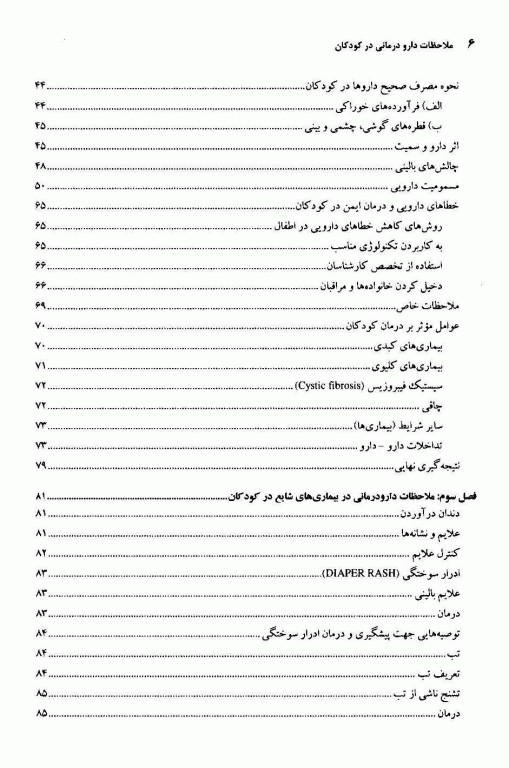 ۶ ملاحظات دارو درمانی در کودکان
نحوه مصرف صحیح داروها در کودکان ۴۴
الف) فرآورده‌های خوراکی ۴۴
ب) قطره‌های گوشی، چشمی و بینی ۴۵
اثر دارو و سمیت ۴۵
چالش‌های بالینی ۴۸
مسمومیت دارویی ۵۰
خطاهای دارویی و درمان ایمن در کودکان ۶۵
روش‌های کاهش خطاهای دارویی در اطفال ۶۵
به کاربردن تکنولوژی مناسب ۶۵
استفاده از تخصص کارشناسان ۶۶
دخیل کردن خانواده‌ها و مراقبان ۶۶
ملاحظات خاص ۶۹
عوامل مؤثر بر درمان کودکان ۷۰
بیماری‌های کبدی ۷۰
بیماری‌های کلیوی ۷۱
سیستیک فیبروزیس (Cystic fibrosis) ۷۲
چاقی ۷۲
سایر شرایط (بیماری‌ها) ۷۳
تداخلات دارو - دارو ۷۳
نتیجه‌گیری نهایی ۷۹
فصل سوم: ملاحظات دارودرمانی در بیماری‌های شایع در کودکان ۸۱
دندان درآوردن ۸۱
علایم و نشانه‌ها ۸۱
کنترل علایم ۸۲
ادرار سوختگی (DIAPER RASH) ۸۳
علایم بالینی ۸۳
درمان ۸۳
توصیه‌هایی جهت پیشگیری و درمان ادرار سوختگی ۸۴
تب ۸۴
تعریف تب ۸۴
تشنج ناشی از تب ۸۵
درمان ۸۵